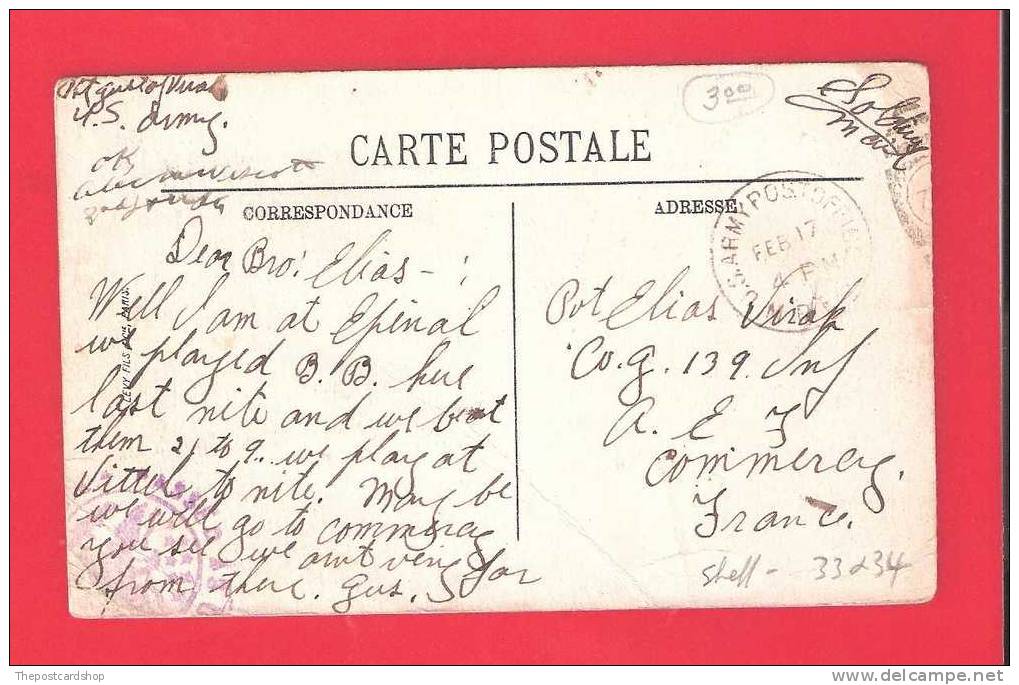 Pvt Gust
U.S. Army.
OK
3 00
Soldiers
mail
CARTE POSTALE
CORRESPONDANCE
ADRESSE
U.S. ARMY POST OFFICE
FEB 17
4 PM
Dear Bro: Elias - :
Well I am at Epinal
we played B. B. here
last nite and we beat
them 21 to 9. we play at
Vittel to nite. May be
we will go to commercy
you see we aint very far
from there. Gus.
LEVY FILS PARIS.
Pvt Elias
Co. G. 139. Inf
A. E. F
Commercy.
France.
Shelf - 33 & 34
Thepostcardshop
delcampe.net